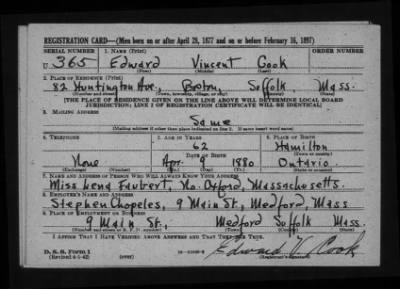 REGISTRATION CARD—(Men born on or after April 28, 1877 and on or before February 16, 1897)
SERIAL NUMBER 1. NAME (Print) ORDER NUMBER
U 365 Edward Vincent Cook
(First) (Middle) (Last)
2. PLACE OF RESIDENCE (Print)
82 Huntington Ave., Boston, Suffolk, Mass.
(Number and street) (Town, township, village, or city) (County) (State)
[THE PLACE OF RESIDENCE GIVEN ON THE LINE ABOVE WILL DETERMINE LOCAL BOARD
JURISDICTION; LINE 2 OF REGISTRATION CERTIFICATE WILL BE IDENTICAL]
3. MAILING ADDRESS
Same
(Mailing address if other than place indicated on line 2. If same insert word same)
4. TELEPHONE 5. AGE IN YEARS 6. PLACE OF BIRTH
62 Hamilton
DATE OF BIRTH (Town or county)
None Apr. 9 1880 Ontario
(Exchange) (Number) (Mo.) (Day) (Yr.) (State or country)
7. NAME AND ADDRESS OF PERSON WHO WILL ALWAYS KNOW YOUR ADDRESS
Miss Lena Faubert, No. Oxford, Massachusetts.
8. EMPLOYER'S NAME AND ADDRESS
Stephen Chopeles, 9 Main St., Medford, Mass
9. PLACE OF EMPLOYMENT OR BUSINESS
9 Main St., Medford Suffolk Mass.
(Number and street or R. F. D. number) (Town) (County) (State)
I AFFIRM THAT I HAVE VERIFIED ABOVE ANSWERS AND THAT THEY ARE TRUE.
D. S. S. Form 1
(Revised 4-1-42) (over) Edward V. Cook
(Registrant's signature)